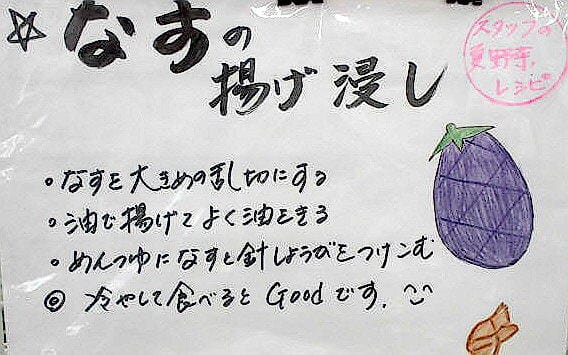 ☆ なすの
揚げ浸し
スタッフの
夏野菜
レシピ
・なすを大きめの乱切にする
・油で揚げてよく油をきる
・めんつゆになすと針しょうがをつけこむ
◎ 冷やして食べると Good です.